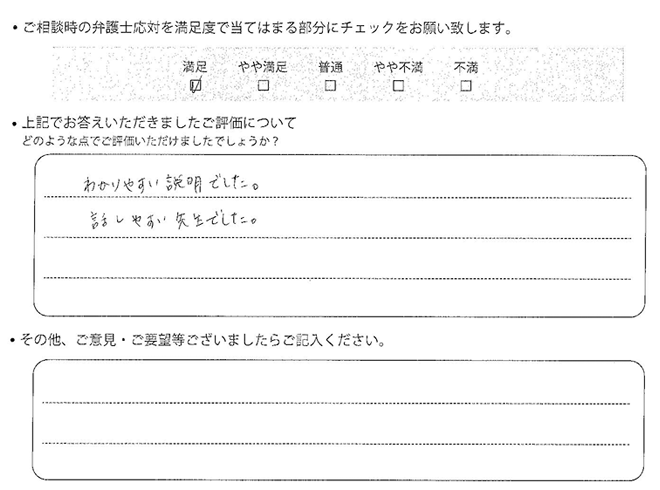 ・ご相談時の弁護士応対を満足度で当てはまる部分にチェックをお願い致します。
満足 やや満足 普通 やや不満 不満
☑ □ □ □ □
・上記でお答えいただきましたご評価について
どのような点でご評価いただけましたでしょうか？
わかりやすい説明でした。
話しやすい先生でした。
・その他、ご意見・ご要望等ございましたらご記入ください。